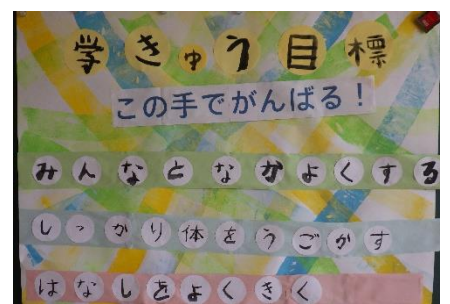 学きゅう目標
この手でがんばる！
みんなとなかよくする
しっかり体をうごかす
はなしをよくきく